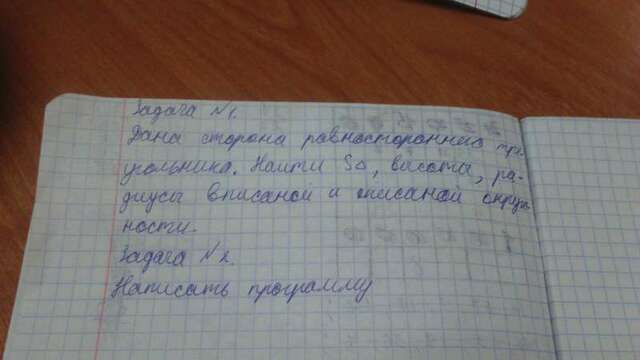 Задача №1.
Дана сторона равностороннего тре
угольника. Найти S△, высоты, ра-
диусы вписаной и описаной окруж
ности.
Задача №2.
Написать программу